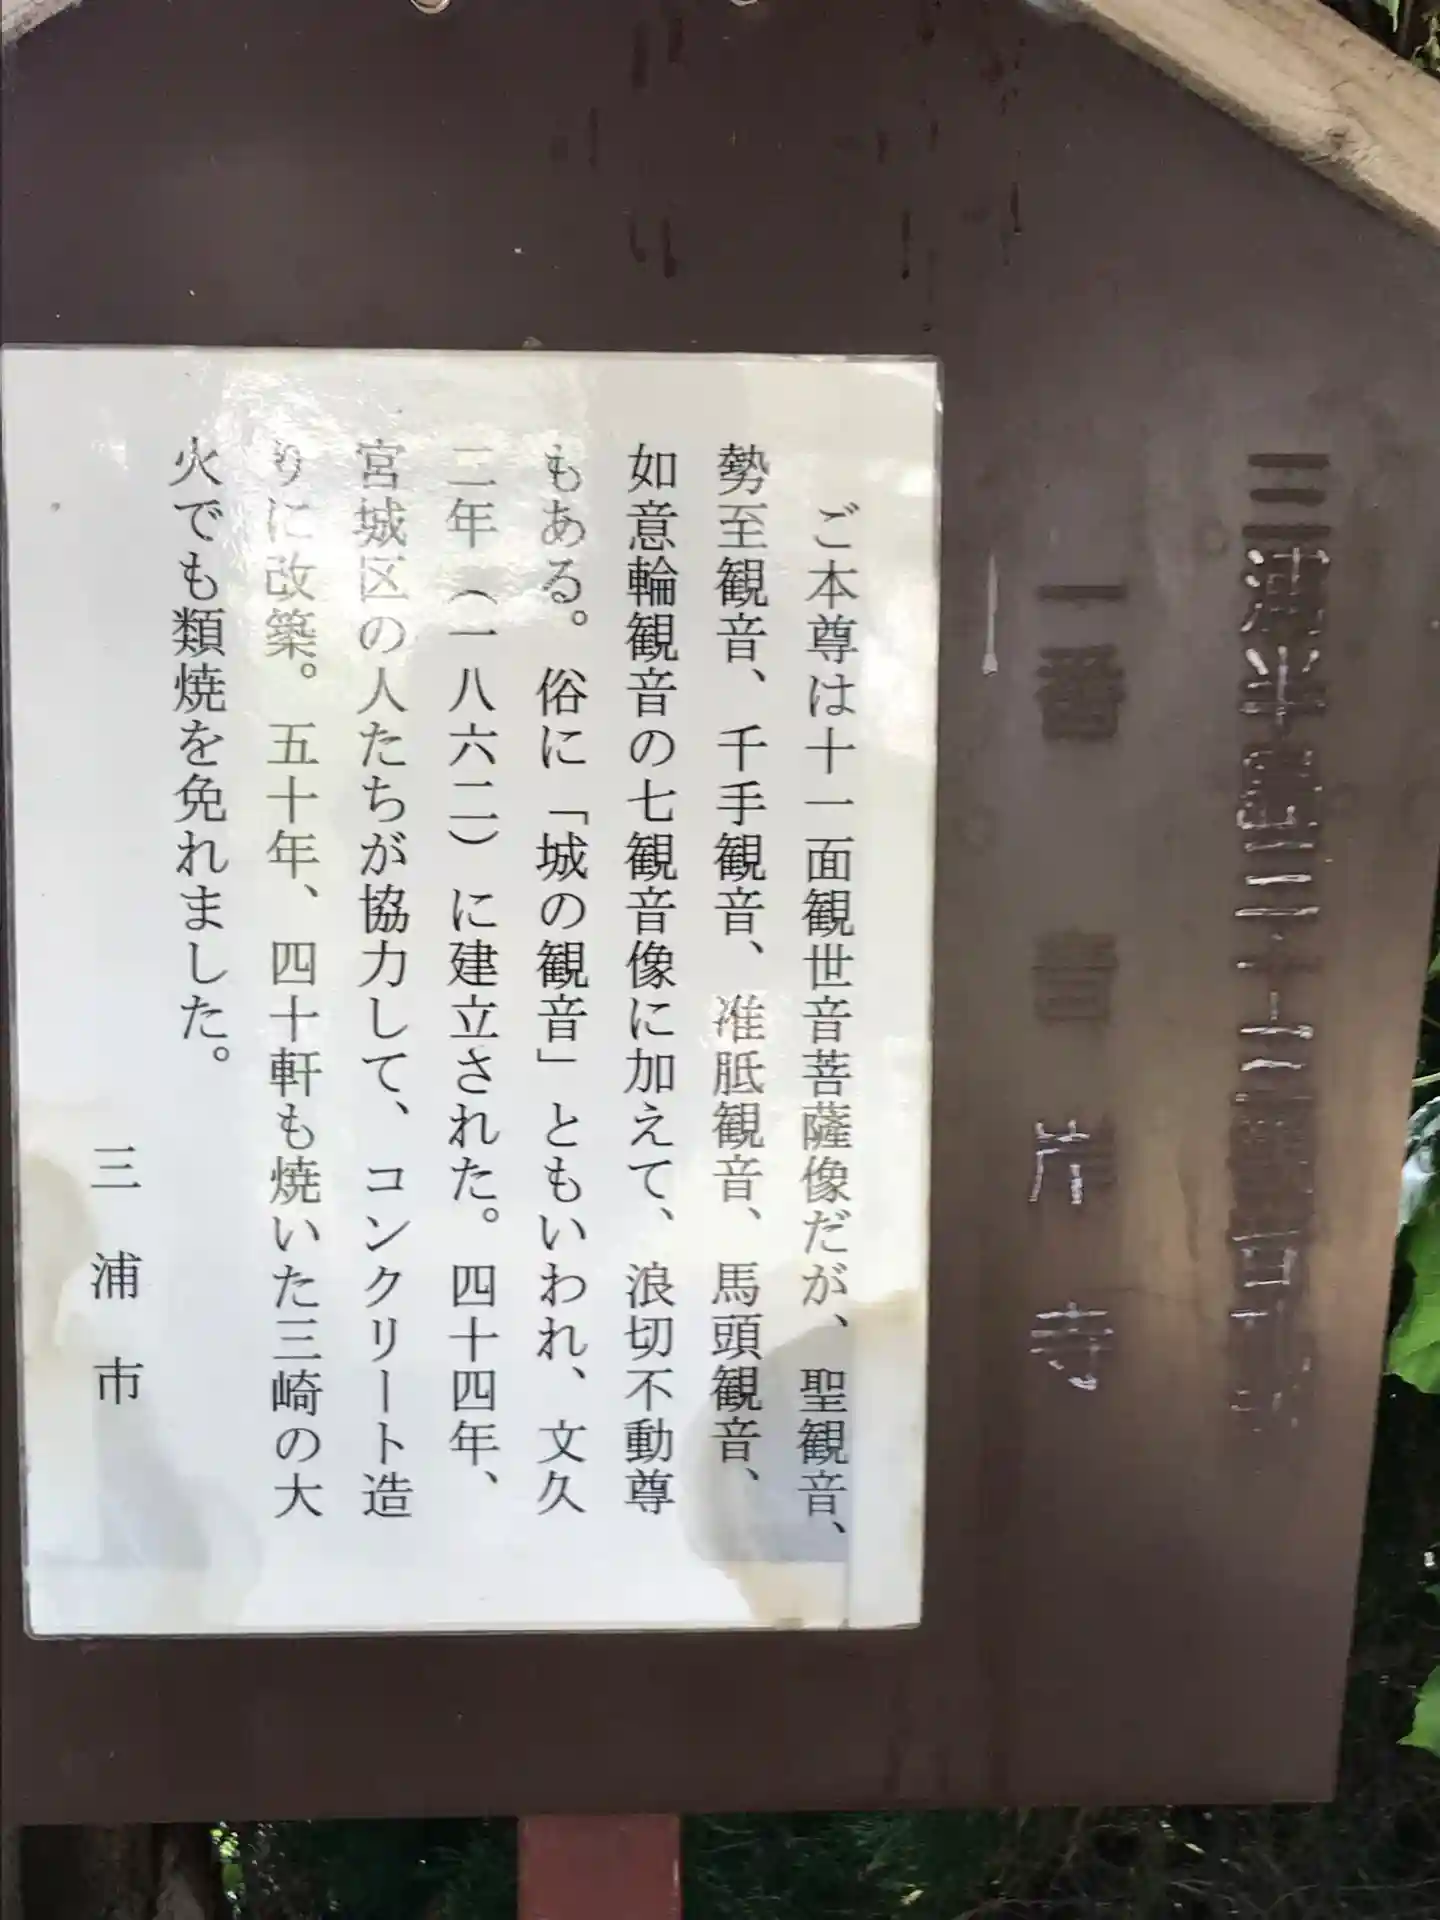 三浦半島三十三観音札所
一番 音岸寺
ご本尊は十一面観世音菩薩像だが、聖観音、
勢至観音、千手観音、准胝観音、馬頭観音、
如意輪観音の七観音像に加えて、浪切不動尊
もある。俗に「城の観音」ともいわれ、文久
二年（一八六二）に建立された。四十四年、
宮城区の人たちが協力して、コンクリート造
りに改築。五十年、四十軒も焼いた三崎の大
火でも類焼を免れました。
三浦市